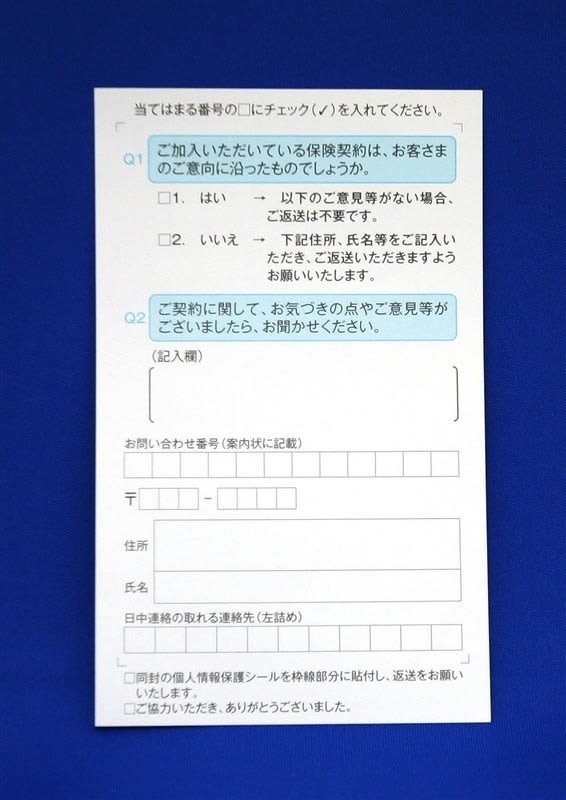 当てはまる番号の□にチェック(✓)を入れてください。
Q1 ご加入いただいている保険契約は、お客さま
のご意向に沿ったものでしょうか。
□1. はい → 以下のご意見等がない場合、
ご返送は不要です。
□2. いいえ → 下記住所、氏名等をご記入い
ただき、ご返送いただきますよう
お願いいたします。
Q2 ご契約に関して、お気づきの点やご意見等が
ございましたら、お聞かせください。
(記入欄)
お問い合わせ番号(案内状に記載)
〒 -
住所
氏名
日中連絡の取れる連絡先(左詰め)
□同封の個人情報保護シールを枠線部分に貼付し、返送をお願い
いたします。
□ご協力いただき、ありがとうございました。